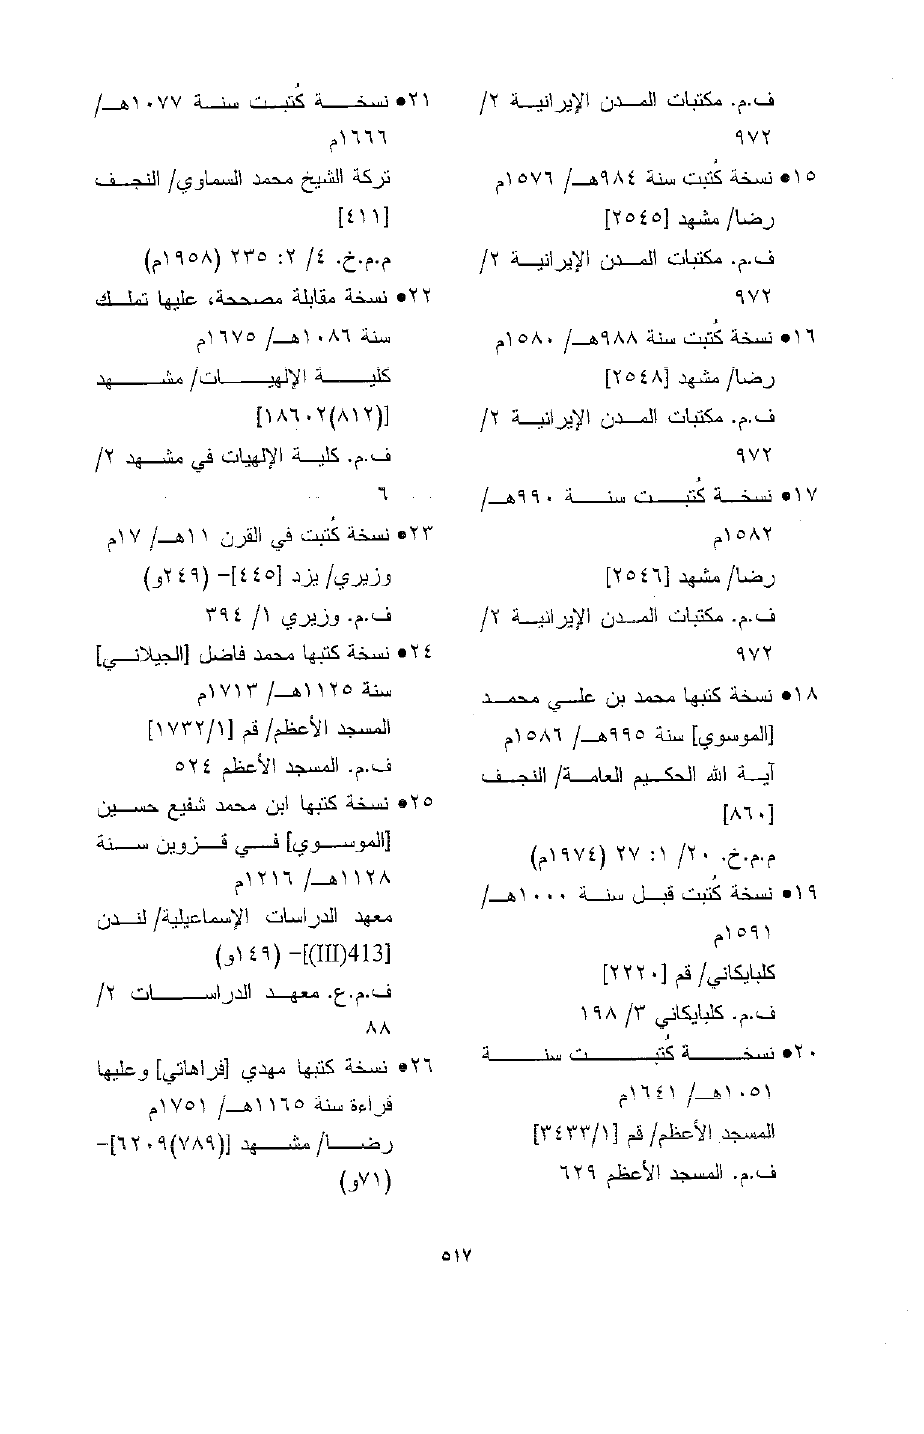 ف.م. مكتبات المدن الإيرانية ٢/
٩٧٢
١٥• نسخة كُتبت سنة ٩٨٤هـ/ ١٥٧٦م
رضا/ مشهد [٢٥٤٥]
ف.م. مكتبات المدن الإيرانية ٢/
٩٧٢
١٦• نسخة كُتبت سنة ٩٨٨هـ/ ١٥٨٠م
رضا/ مشهد [٢٥٤٨]
ف.م. مكتبات المدن الإيرانية ٢/
٩٧٢
١٧• نسخة كُتبت سنة ٩٩٠هـ/
١٥٨٢م
رضا/ مشهد [٢٥٤٦]
ف.م. مكتبات المدن الإيرانية ٢/
٩٧٢
١٨• نسخة كتبها محمد بن علي محمد
[الموسوي] سنة ٩٩٥هـ/ ١٥٨٦م
آية الله الحكيم العامة/ النجف
[٨٦٠]
م.م.خ. ٢٠/ ١: ٢٧ (١٩٧٤م)
١٩• نسخة كُتبت قبل سنة ١٠٠٠هـ/
١٥٩١م
كلبايكاني/ قم [٢٢٢٠]
ف.م. كلبايكاني ٣/ ١٩٨
٢٠• نسخة كُتبت سنة
١٠٥١هـ/ ١٦٤١م
المسجد الأعظم/ قم [٣٤٣٣/١]
ف.م. المسجد الأعظم ٦٢٩
٢١• نسخة كُتبت سنة ١٠٧٧هـ/
١٦٦٦م
تركة الشيخ محمد السماوي/ النجف
[٤١١]
م.م.خ. ٤/ ٢: ٢٣٥ (١٩٥٨م)
٢٢• نسخة مقابلة مصححة، عليها تملك
سنة ١٠٨٦هـ/ ١٦٧٥م
كلية الإلهيات/ مشهد
[١٨٦٠٢(٨١٢)]
ف.م. كلية الإلهيات في مشهد ٢/
٦
٢٣• نسخة كُتبت في القرن ١١هـ/ ١٧م
وزيري/ يزد [٤٤٥]- (٢٤٩و)
ف.م. وزيري ١/ ٣٩٤
٢٤• نسخة كتبها محمد فاضل [الجيلاني]
سنة ١١٢٥هـ/ ١٧١٣م
المسجد الأعظم/ قم [١٧٣٢/١]
ف.م. المسجد الأعظم ٥٢٤
٢٥• نسخة كتبها ابن محمد شفيع حسين
[الموسوي] في قزوين سنة
١١٢٨هـ/ ١٢١٦م
معهد الدراسات الإسماعيلية/ لندن
[413(III)]- (١٤٩و)
ف.م.ع. معهد الدراسات ٢/
٨٨
٢٦• نسخة كتبها مهدي [فراهاتي] وعليها
قراءة سنة ١١٦٥هـ/ ١٧٥١م
رضا/ مشهد [(٧٨٩)٦٢٠٩]-
(٧١و)
٥١٧